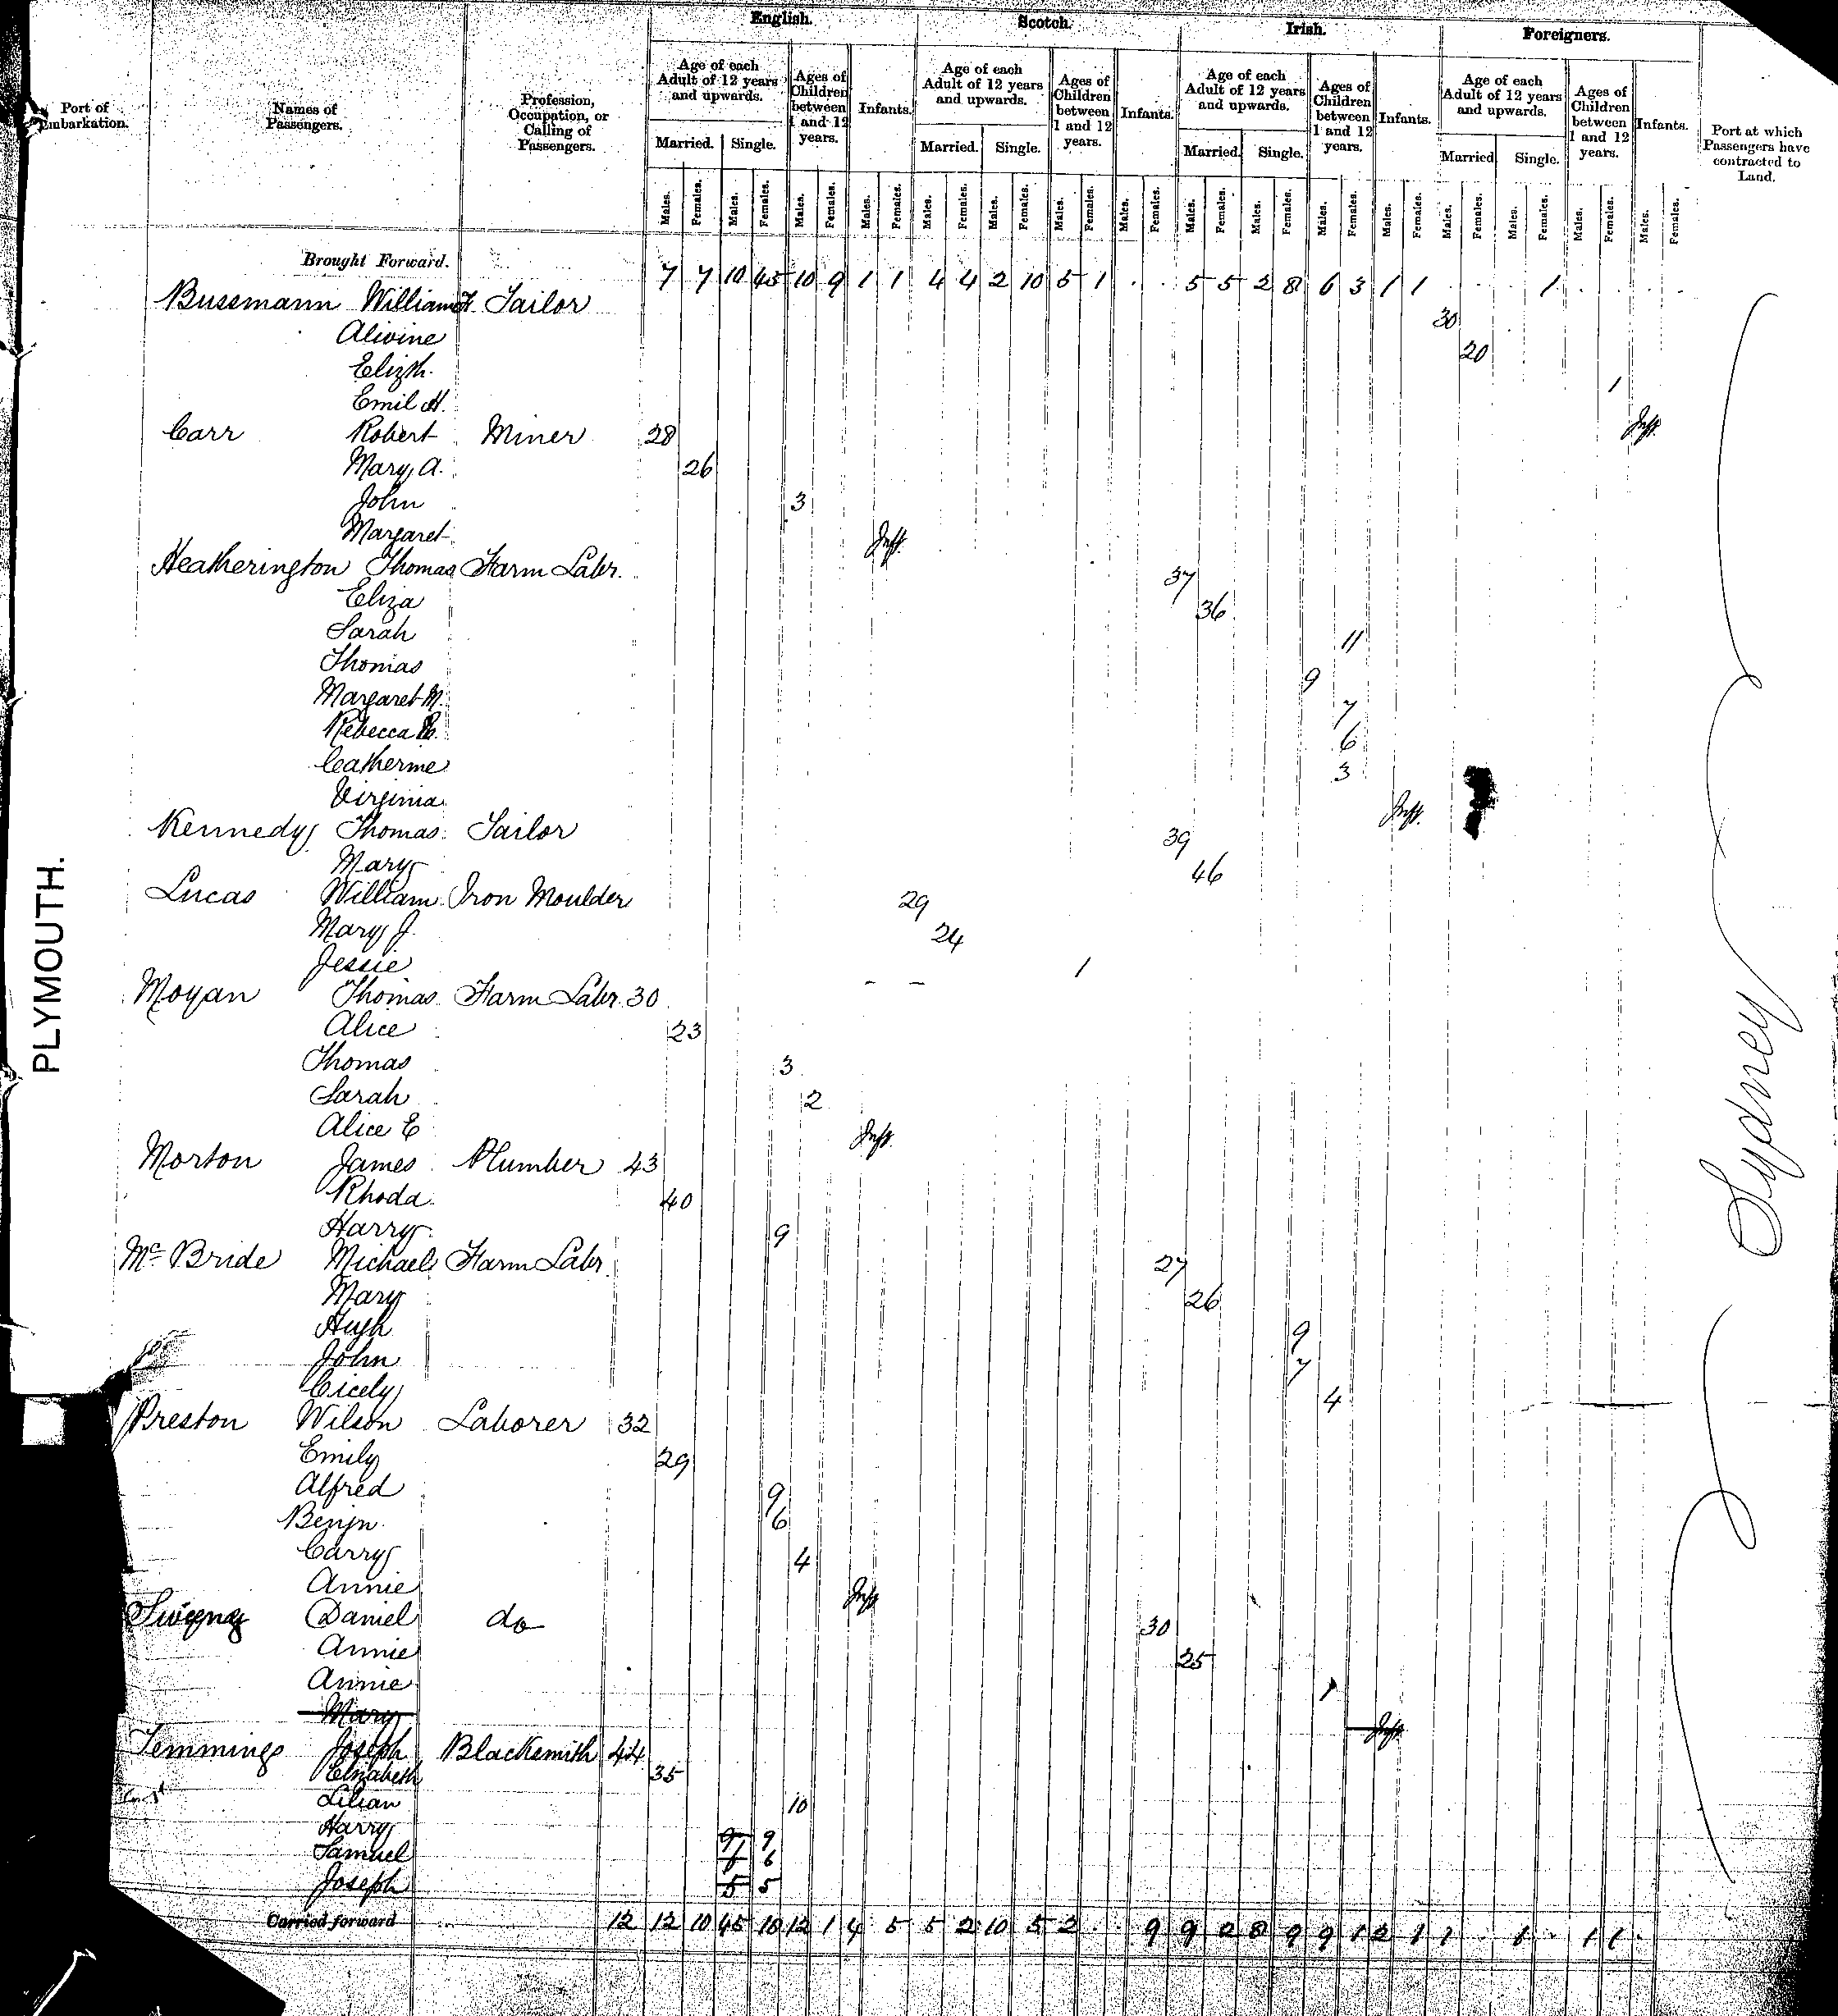 English. Scotch. Irish. Foreigners.
Port of Embarkation. Names of Passengers. Profession, Occupation, or Calling of Passengers. Age of each Adult of 12 years and upwards. Ages of Children between 1 and 12 years. Infants. Age of each Adult of 12 years and upwards. Ages of Children between 1 and 12 years. Infants. Age of each Adult of 12 years and upwards. Ages of Children between 1 and 12 years. Infants. Age of each Adult of 12 years and upwards. Ages of Children between 1 and 12 years. Infants. Port at which Passengers have contracted to Land.
Married. Single. Married. Single. Married. Single. Married. Single.
Males. Females. Males. Females. Males. Females. Males. Females. Males. Females. Males. Females. Males. Females. Males. Females. Males. Females. Males. Females. Males. Females. Males. Females. Males. Females. Males. Females. Males. Females. Males. Females.
Brought Forward. 7 7 10 45 10 9 1 1 4 4 2 10 5 1 . . 5 5 2 8 6 3 1 1 . . . 1 . . . .
Bussmann William F. Tailor 30
Alivine 20
Elizth. 1
Emil H. Inft.
Carr Robert Miner 28
Mary A. 26
John 3
Margaret Inft.
Heatherington Thomas Farm Labr. 37
Eliza 36
Sarah 11
Thomas 9
Margaret M. 7
Rebecca 6
Catherine 3
Virginia Inft.
Kennedy Thomas Tailor 39
Mary 46
Lucas William Iron Moulder 29
Mary J. 24
Jessie 1
Moyan Thomas Farm Labr. 30
Alice 23
Thomas 3
Sarah 2
Alice E Inft.
Morton James Plumber 43
Rhoda 40
Harry 9
Mc Bride Michael Farm Labr. 27
Mary 26
Hugh 9
John 7
Cicely 4
Preston Wilson Laborer 32
Emily 29
Alfred 9
Benjn. 6
Carry 4
Annie Inft.
Sweeney Daniel do 30
Annie 25
Annie 1
Mary Inft.
Temmings Joseph Blacksmith 44
Elizabeth 35
Lilian 10
Harry 9 9
Samuel 6 6
Joseph 5 5
Carried forward 12 12 10 45 18 12 1 4 5 5 2 10 5 2 . . 9 9 2 8 9 9 1 2 1 1 . . 1 . 1 1 .
PLYMOUTH.
Sydney